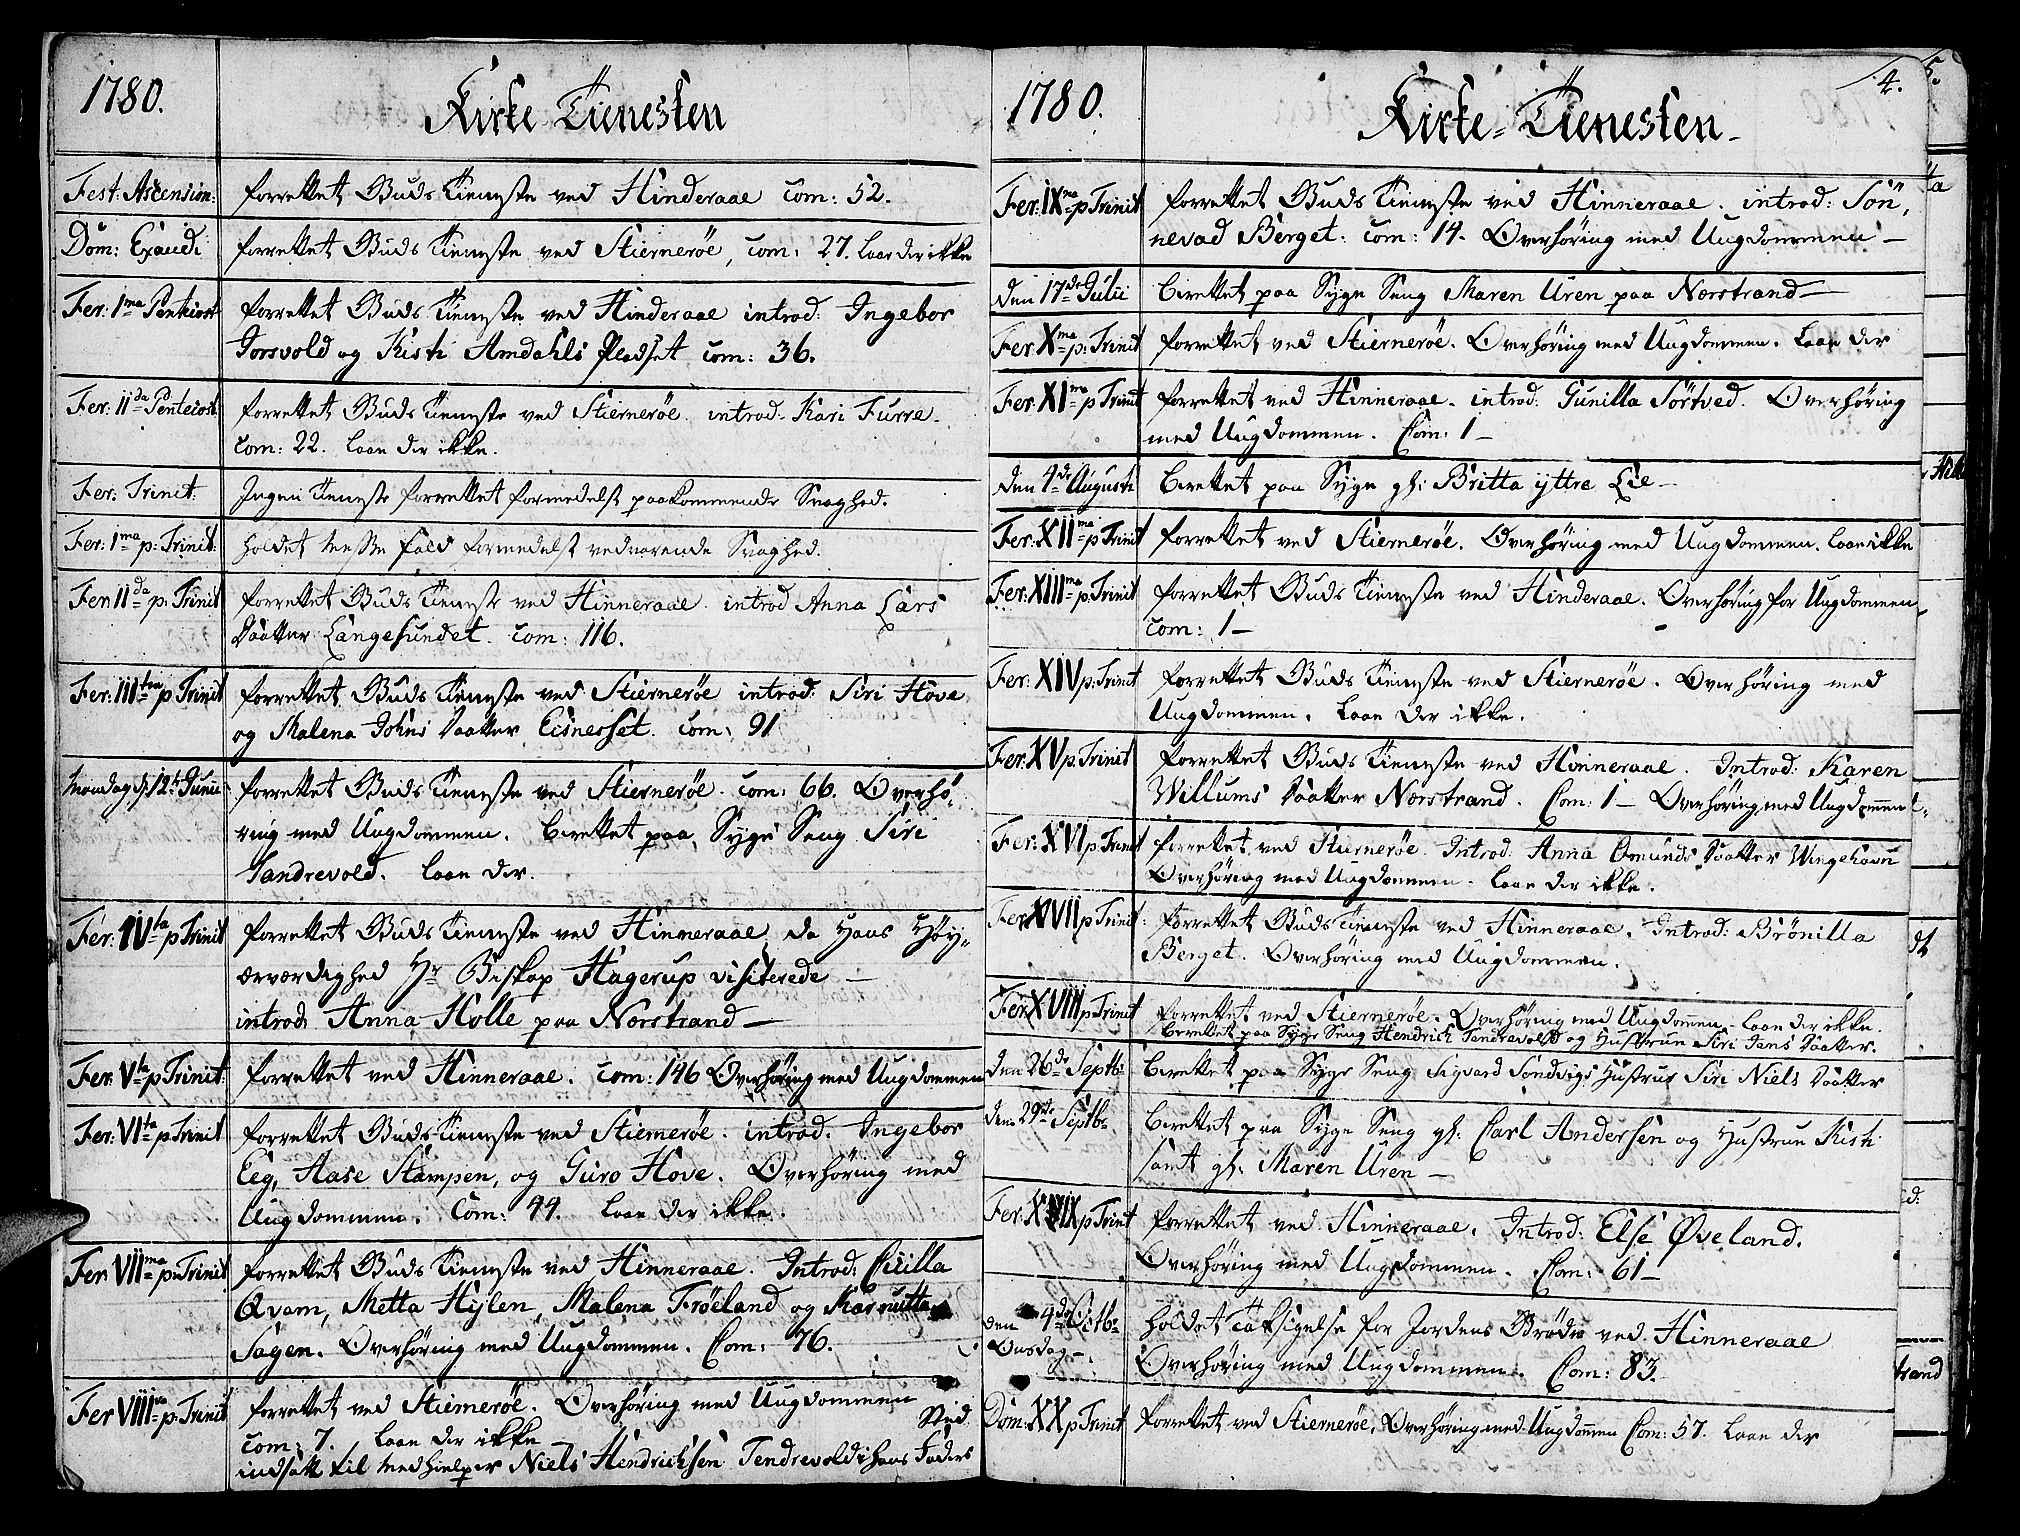 1780.
Kirke Tienesten
Fest: Ascension: forrettet Guds Tieneste ved Hinderaae com: 52.
Dom: Exaudi forrettet Guds Tieneste ved Stiernerøe, com: 27. Laae der ikke
Fer: 1ma Pentecost forrettet Guds Tieneste ved Hinderaae introd: Ingebor
Gorsvold og Kisti Amdahls Pladset com: 36.
Fer: IIda Pentecost. forrettet Guds Tieneste ved Stiernerøe. introd: Kari Furre.
com: 22. Laae der ikke.
Fer: Trinit: Ingen Tieneste forrettet formedelst paakommende Svaghed.
Fer: 1ma p: Trinit: holdet Messe fald formedelst vedvarende Svaghed.
Fer: IIda p: Trinit forrettet Guds Tieneste ved Hinneraae. introd Anna Lars
Daatter Langesundet. com: 116.
Fer: IIItia p Trinit forrettet Guds Tieneste ved Stiernerøe introd: Siri Hove
og Malena Johns Daatter Eisnesset. com: 91
Mandag d. 12te Junii forrettet Guds Tieneste ved Stiernerøe. com: 66. Overhø-
ring med Ungdommen. Berettet paa Syge Seng Siri
Tandrevold. Laae der.
Fer: IVta p Trinit forrettet Guds Tieneste ved Hinneraae da Hans Høy-
ærværdighed Hr Biskop Hagerup visiterede —
introd: Anna Holle paa Norstrand —
Fer: Vta p Trinit: forrettet ved Hinneraae. com: 146 Overhøring med Ungdommen
Fer: VIta p Trinit forrettet Guds Tieneste ved Stiernerøe. introd. Ingebor
Eeg, Aase Stampen, og Guro Hove. Overhøring med
Ungdommen. Com: 44. Laae der ikke.
Fer: VIIma p: Trinit forrettet Guds Tieneste ved Hinneraae. Introd: Cicilla
Qvam, Metta Hylen, Malena Frøeland og
Sagen. Overhøring med Ungdommen. Com: 76.
Fer VIIIva p: Trinit forrettet ved Stiernerøe. Overhøring med Ungdommen
com: 7. Laae der ikke — Sted
indsatt til Medhielper Niels Hendrichsen Tendrevold i hans Faders
1780.
4.
Kirke-Tienesten
Fer: IXna p Trinit forrettet Guds Tieneste ved Hinneraae. introd: Sön,
nevad Berget. com: 14. Overhøring med Ungdommen —
den 17de Julii berettet paa Syge Seng Maren Uren paa Norstrand —
Fer: Xma p: Trinit forrettet ved Stiernerøe. Overhøring med Ungdommen. Laae der
Fer: XIma p Trinit forrettet ved Hinneraae. introd: Gunilla Sörtved. Overhöring
med Ungdommen. Com: 1 —
den 4de Augusti berettet paa Syge gl: Britta yttre Lie —
Fer: XIIma p Trinit forrettet ved Stiernerøe. Overhøring med Ungdommen. Laae ikke
Fer: XIIIma p: Trinit forrettet Guds Tieneste ved Hinderaae. Overhøring for Ungdommen
com: 1 —
Fer: XIV p: Trinit forrettet Guds Tieneste ved Stiernerøe. Overhøring med
Ungdommen. Laae der ikke.
Fer: XV p. Trinit forrettet Guds Tieneste ved Hinneraae. Introd: Karen
Willums Daatter Norstrand. Com: 1 — Overhøring med Ungdommen
Fer: XVI p: Trinit forrettet ved Stiernerøe. Introd: Anna Omunds Daatter Wingehavn
Overhøring med Ungdommen. Laae der ikke.
Fer: XVII p Trinit: forrettet Guds Tieneste ved Hinneraae. Introd: Brönilla
Berget. Overhøring med Ungdommen.
Fer: XVIII p Trinit forrettet ved Stiernerøe. Overhøring med Ungdommen. Laae der ikke.
berettet paa Syge Seng Hendrich Tandrevold og Hustrue Siri Jans Daatter.
den 26de Septb: berettet paa Syge Seng Sigvard Sandvigs Hustrue Siri Niels Daatter
den 29de Septb: berettet paa Syge Seng gl: Carl Andersen og Hustrue Kisti
samt gl: Maren Uren —
Fer: XIX p Trinit forrettet ved Hinneraae. Introd: Else Øveland.
Overhøring med Ungdommen. Com: 61 —
den 4de Octb: holdet Taksigelse for Jordens Grøde ved Hinneraae
Onsdag —. Overhøring med Ungdommen. Com: 83.
Dom: XX p Trinit forrettet ved Stiernerøe, Overhøring med Ungdommen Com: 57. Laae der